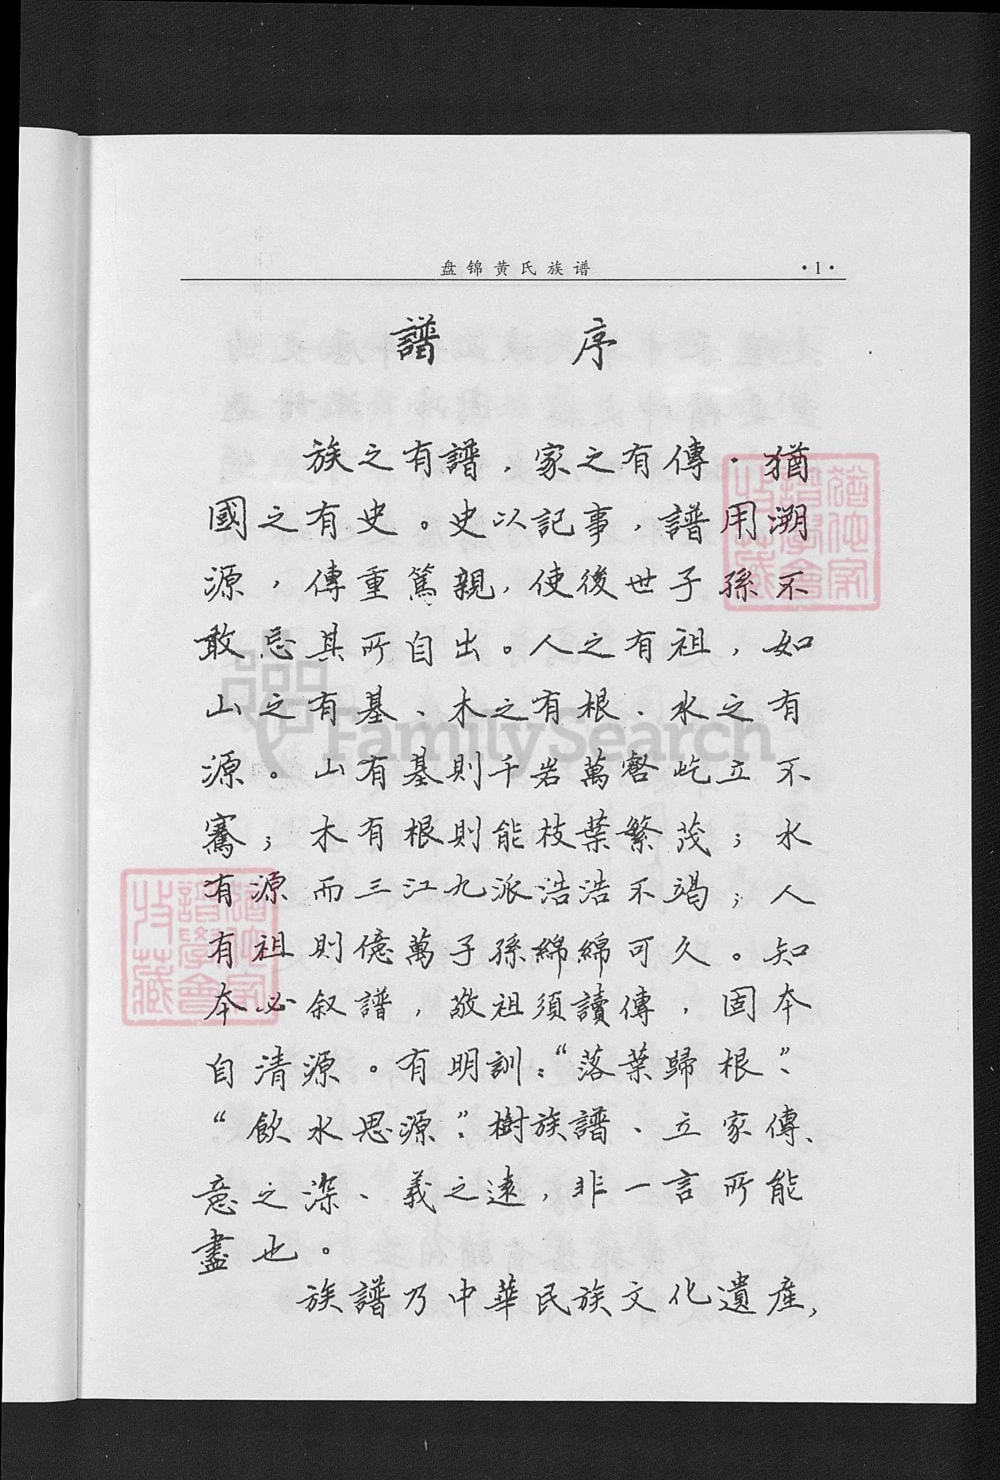 盘锦黄氏族谱 ·1·
譜 序
族之有譜，家之有傳．猶
國之有史。史以記事，譜用溯
源，傳重篤親，使後世子孫不
敢忘其所自出。人之有祖，如
山之有基、木之有根、水之有
源。山有基則千岩萬壑屹立不
騫；木有根則能枝葉繁茂；水
有源而三江九派浩浩不竭；人
有祖則億萬子孫綿綿可久。知
本必叙譜，敬祖須讀傳，固本
自清源。有明訓：“落葉歸根”、
“飲水思源”：樹族譜、立家傳、
意之深、義之遠，非一言所能
盡也。
族譜乃中華民族文化遺産，
猶他家
譜學會
收藏
猶他家
譜學會
收藏
FamilySearch